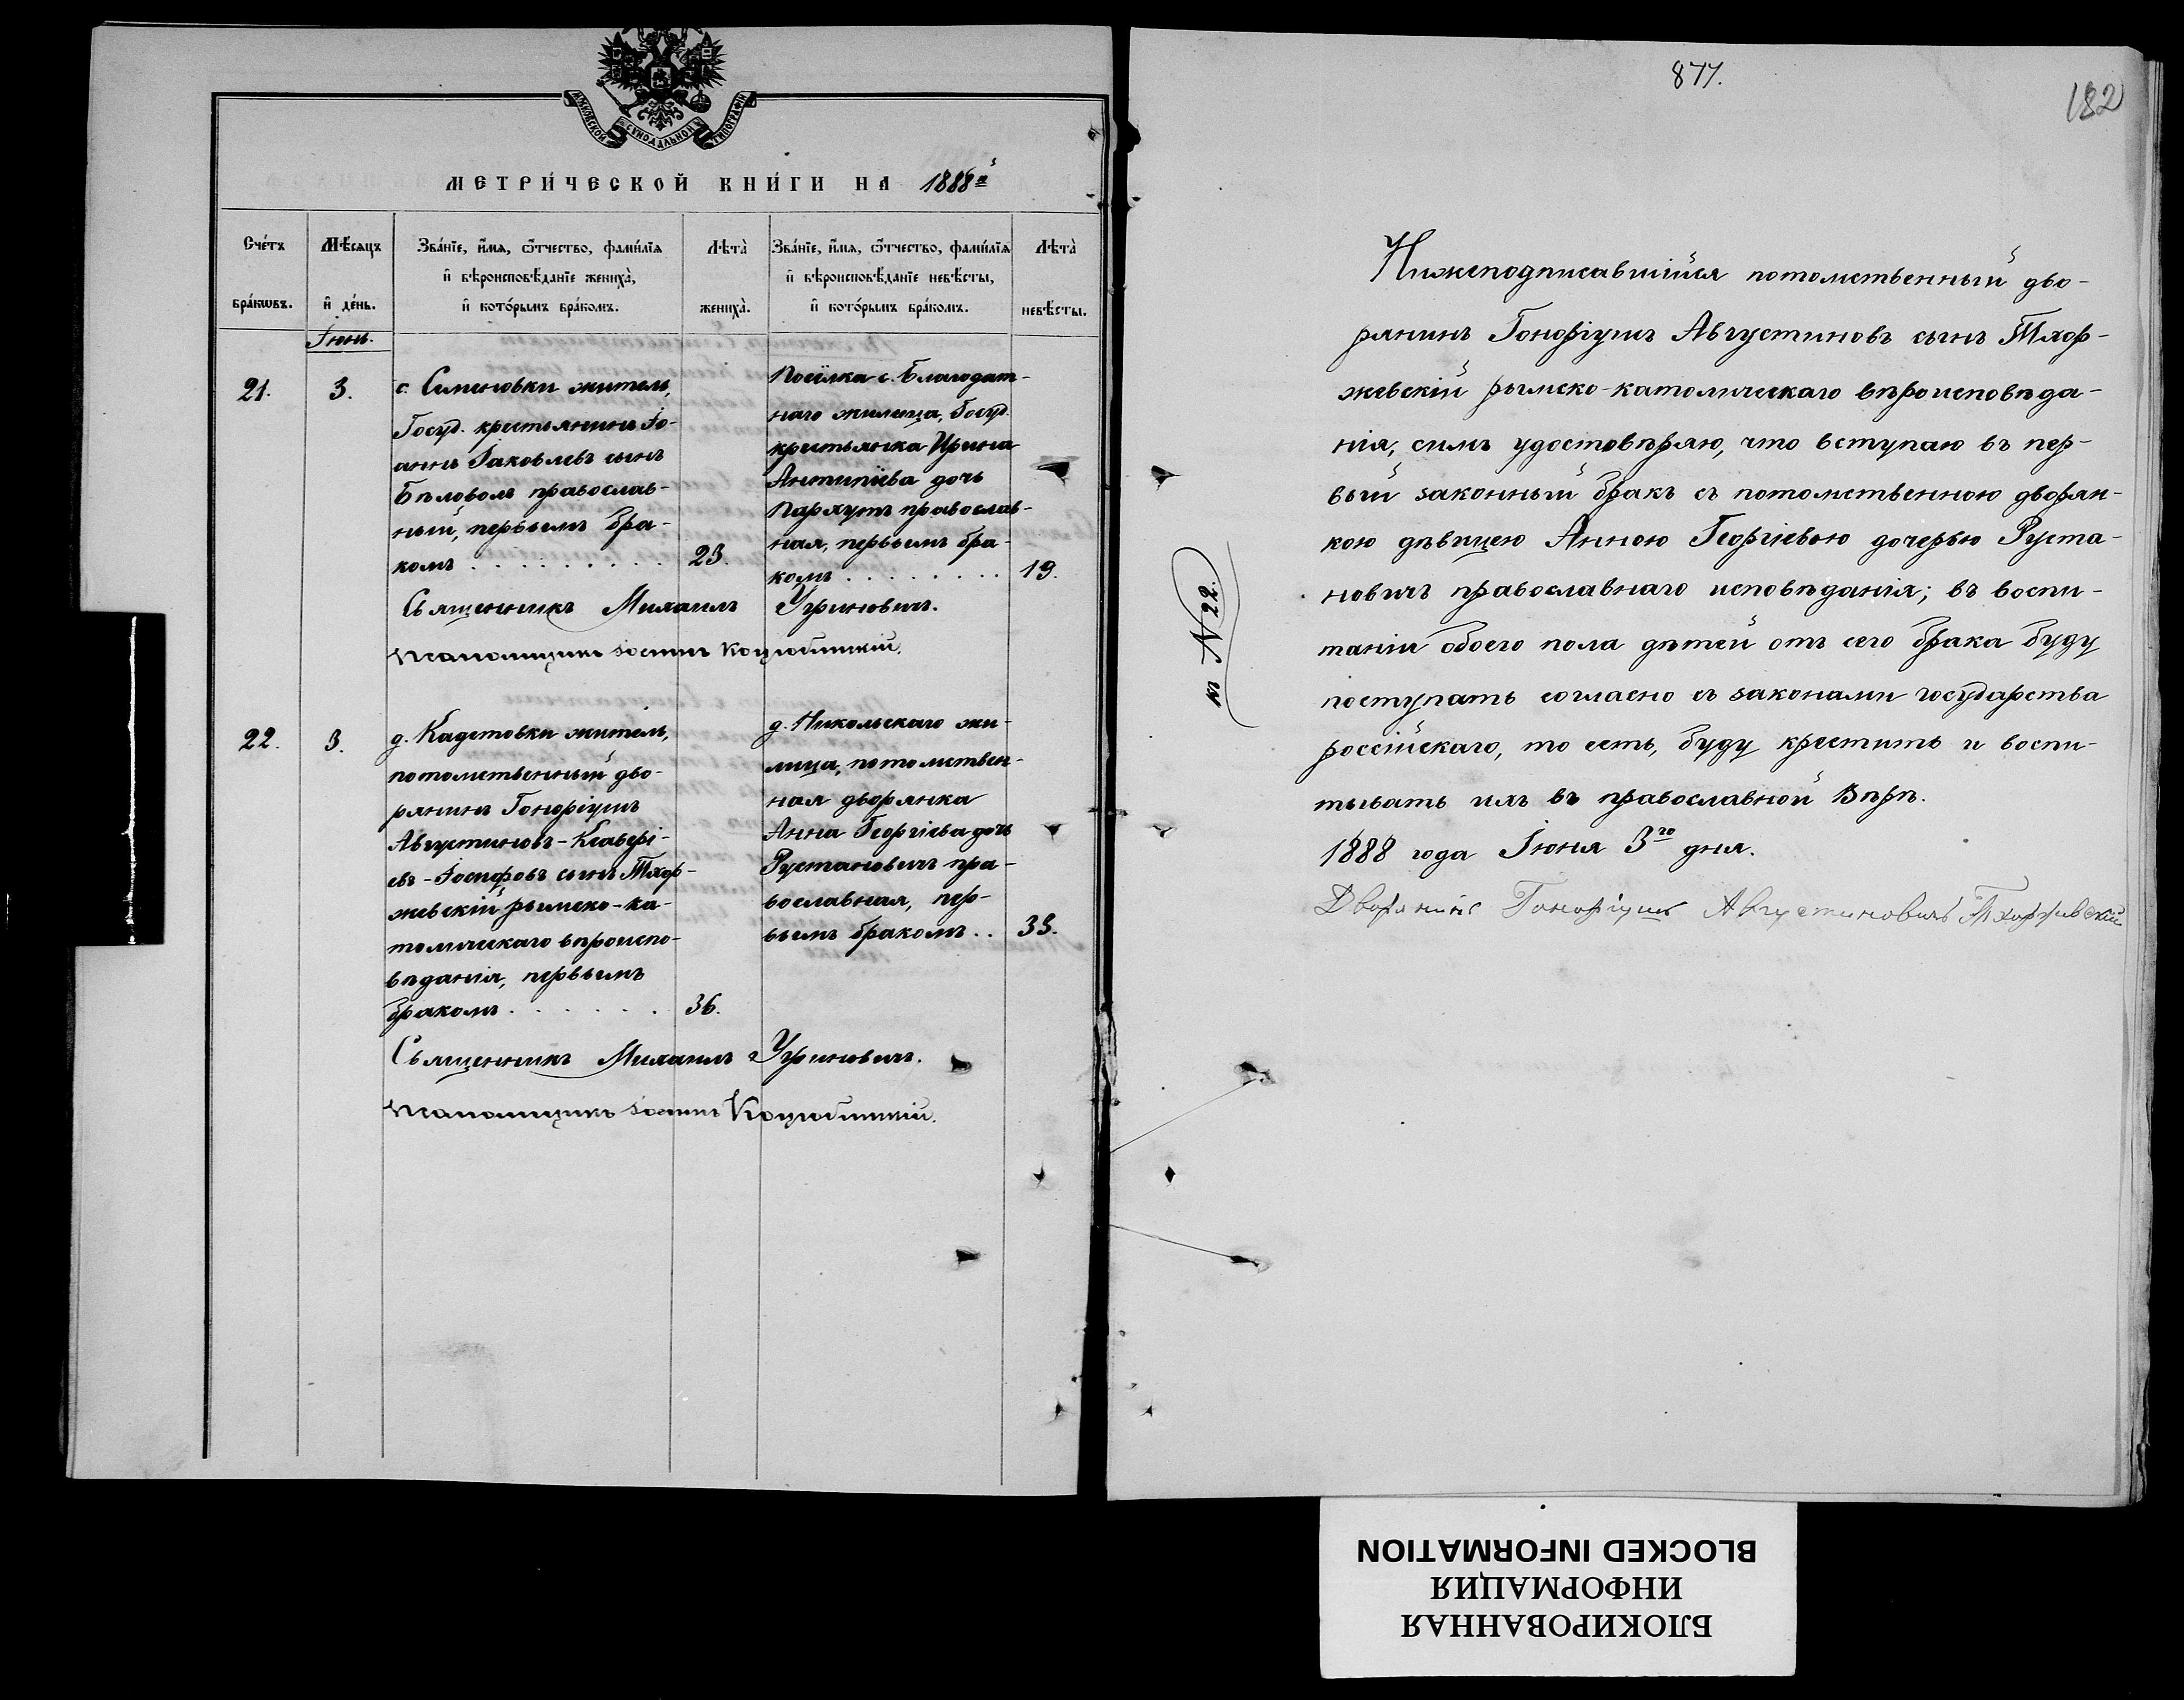 МОСКОВСКОЙ СѴНОДАЛЬНОЙ ТИПОГРАФІИ
МЕТРИ́ЧЕСКОЙ КНИ́ГИ НА 1888й
Счéтъ бра́кωвъ.
Мѣ́сяцъ и҆ де́нь.
Зва́нїе, и҆́мя, ѻ҆́тчество, фами́лїя
и҆ вѣроисповѣ́данїе жениха̀,
и҆ кото́рымъ бра́комъ.
Лѣта̀ жениха̀.
Зва́нїе, и҆́мя, ѻ҆́тчество, фами́лїя
и҆ вѣроисповѣ́данїе невѣ́сты,
и҆ кото́рымъ бра́комъ.
Лѣта̀ невѣ́сты.
Іюнь.
21.
3.
с. Семеновки житель,
Госуд. крестьянинъ Іо-
аннъ Іаковлевъ сынъ
Бѣловолъ православ-
ный, первымъ бра-
комъ . . . . . . . . . 23.
Посёлка с. Благодат-
наго жилица, Госуд.
крестьянка Ирина
Антипіева дочь
Пархутъ православ-
ная, первымъ бра-
комъ . . . . . . . . 19.
Священникъ Михаилъ Угриновичъ.
Псаломщикъ Іосифъ Коцюбинскій.
22.
3.
д. Кадетовки житель,
потомственный дво-
рянинъ Гоноріушъ
Августиновъ-Ксавері-
евъ-Іосифовъ сынъ Тхор-
жевскій римско-ка-
толическаго вѣроиспо-
вѣданія, первымъ
бракомъ . . . . . . . 36.
д. Никольскаго жи-
лица, потомствен-
ная дворянка
Анна Георгіева дочь
Рустановичъ пра-
вославная, пер-
вымъ бракомъ . . 33.
Священникъ Михаилъ Угриновичъ.
Псаломщикъ Іосифъ Коцюбинскій.
877.
182
къ №22.
Нижеподписавшійся потомственный дво-
рянинъ Гоноріушъ Августиновъ сынъ Тхор-
жевскій римско-католическаго вѣроисповѣда-
нія, симъ удостовѣряю, что вступаю въ пер-
вый законный бракъ съ потомственною дворян-
кою дѣвицею Анною Георгіевою дочерью Руста-
новичъ православнаго исповѣданія; въ воспи-
таніи обоего пола дѣтей отъ сего брака буду
поступать согласно съ законами государства
россійскаго, то есть, буду крестить и воспи-
тывать ихъ въ православной Вѣрѣ.
1888 года Іюня 3го дня.
Дворянинъ Гоноріушъ Августиновичъ Тхоржевскій
БЛОКИРОВАННАЯ
ИНФОРМАЦИЯ
BLOCKED INFORMATION